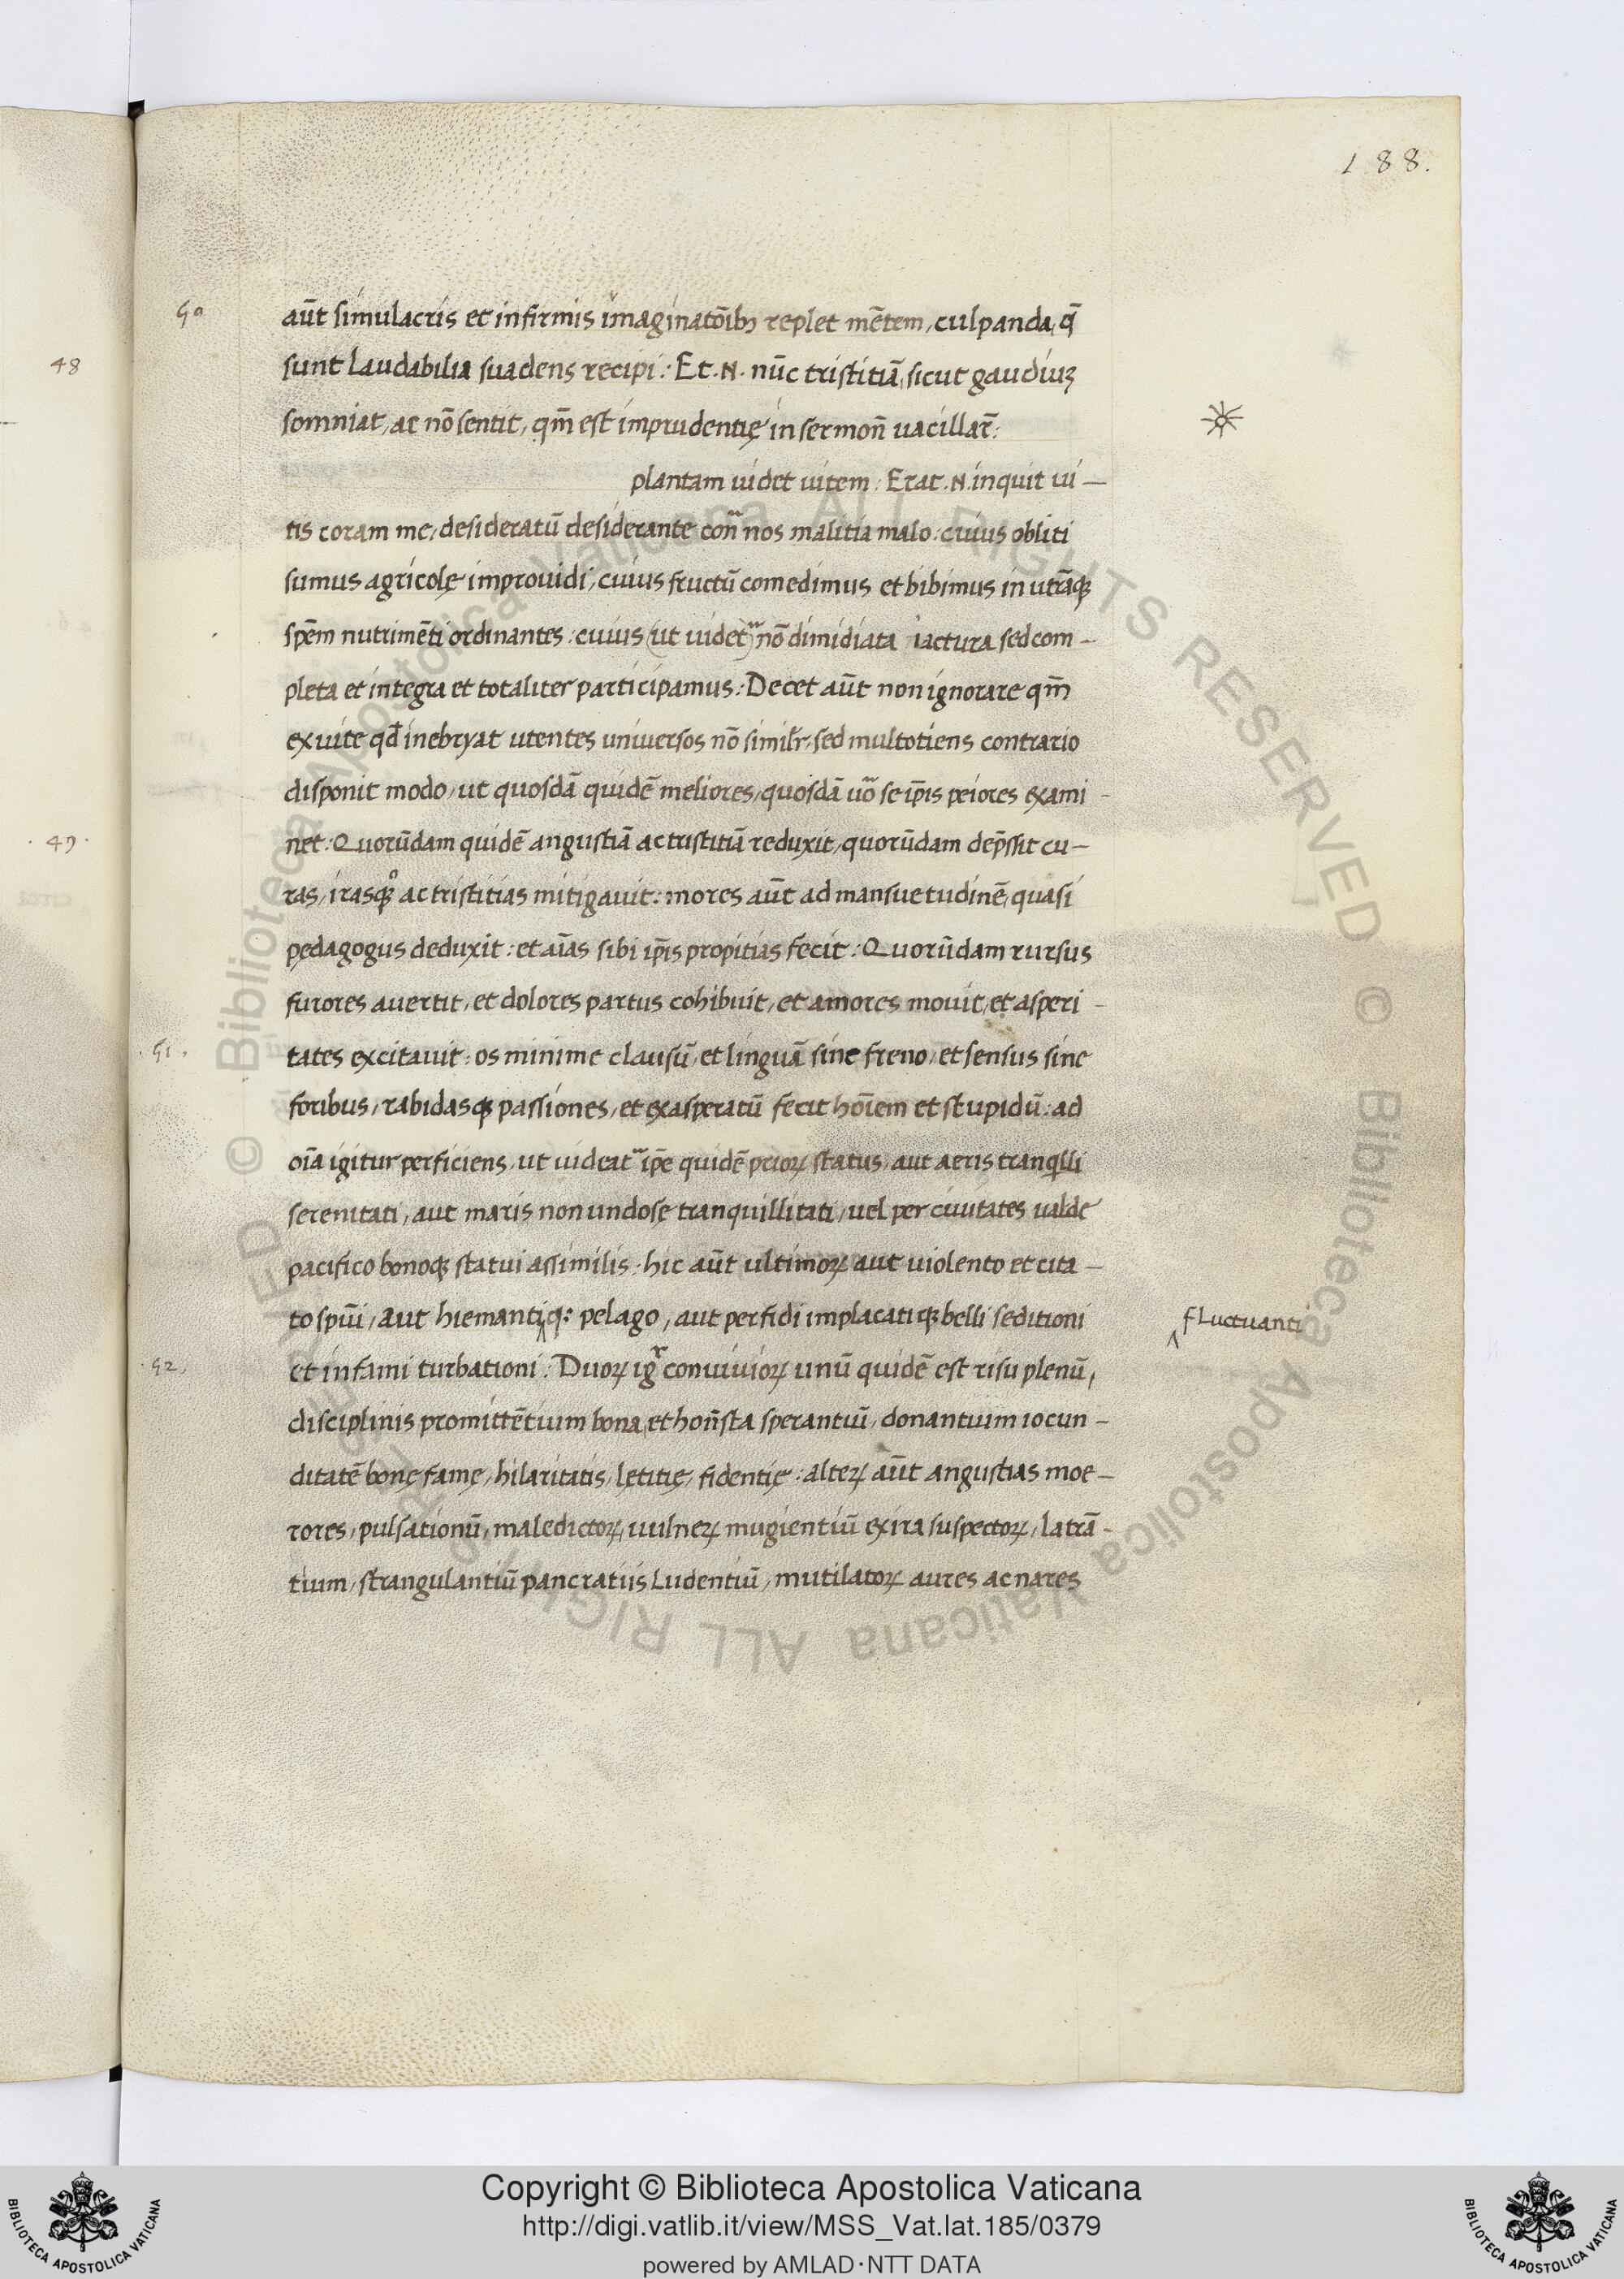 188.
50
48
aūt simulacris et infirmis imaginatōibꝫ replet mētem, culpanda, q̄
sunt laudabilia suadens recipi: Et .N. nūc tristitiā, sicut gaudiuꝫ
somniat, ac nō sentit, qm̄ est imprudentię in sermon̄ uacillar̄:
plantam uidet uitem: Erat .N. inquit ui—
tis coram me, desideratū desiderante con̄ nos malitia malo: cuius obliti
sumus agricolę improuidi, cuius fructū comedimus et bibimus in utrāqꝫ
spēm nutrimēti ordinantes: cuius (ut uidet᷑) nō dimidiata iactura sed com—
pleta et integra et totaliter participamus: Decet aūt non ignorare qm̄
ex uite qd̄ inebryat utentes uniuersos nō simil̄r, sed multotiens contrario
disponit modo, ut quosdā quidē meliores, quosdā ūo se ip̄is peiores exami-
49.
net: Quorūdam quidē angustiā ac tristitiā reduxit, quorūdam dep̄ssit cu—
ras, irasqꝫ ac tristitias mitigauit: mores aūt ad mansuetudinē, quasi
pędagogus deduxit: et aīas sibi ip̄is propitias fecit: Quorūdam rursus
furores auertit, et dolores partus cohibuit, et amores mouit, et asperi-
51.
tates excitauit: os minime clausū, et linguā sine freno, et sensus sine
foribus, rabidasqꝫ passiones, et exasperatū fecit hoīem et stupidū: ad
oīa igitur perficiens, ut uideat᷑ ip̄e quidē prioꝝ status, aut aeris tranqlli
serenitati, aut maris non undosę tranquillitati, uel per ciuitates ualde
pacifico bonoqꝫ statui assimilis: hic aūt ultimoꝝ aut uiolento et cita—
to spūi, aut hiemantiqꝫ pelago, aut perfidi implacatiqꝫ belli seditioni
fluctuanti
52.
et infami turbationi: Duoꝝ igr̄ conuiuioꝝ unū quidē est risu plenū,
disciplinis promittētium bona, et hon̄sta sperantiū, donantium iocun—
ditatē bonę famę, hilaritatis, lętitię, fidentię: alteꝝ aūt angustias moe—
rores, pulsationū, maledictoꝝ, uulneꝝ mugientiū ex ira suspectoꝝ, latrā-
tium, strangulantiū pancratiis ludentiū, mutilatoꝝ aures ac nares
© Biblioteca Apostolica Vaticana ALL RIGHTS RESERVED © Biblioteca Apostolica Vaticana ALL RIGHTS RESERVED
Copyright © Biblioteca Apostolica Vaticana
http://digi.vatlib.it/view/MSS_Vat.lat.185/0379
powered by AMLAD·NTT DATA
BIBLIOTECA APOSTOLICA VATICANA
BIBLIOTECA APOSTOLICA VATICANA